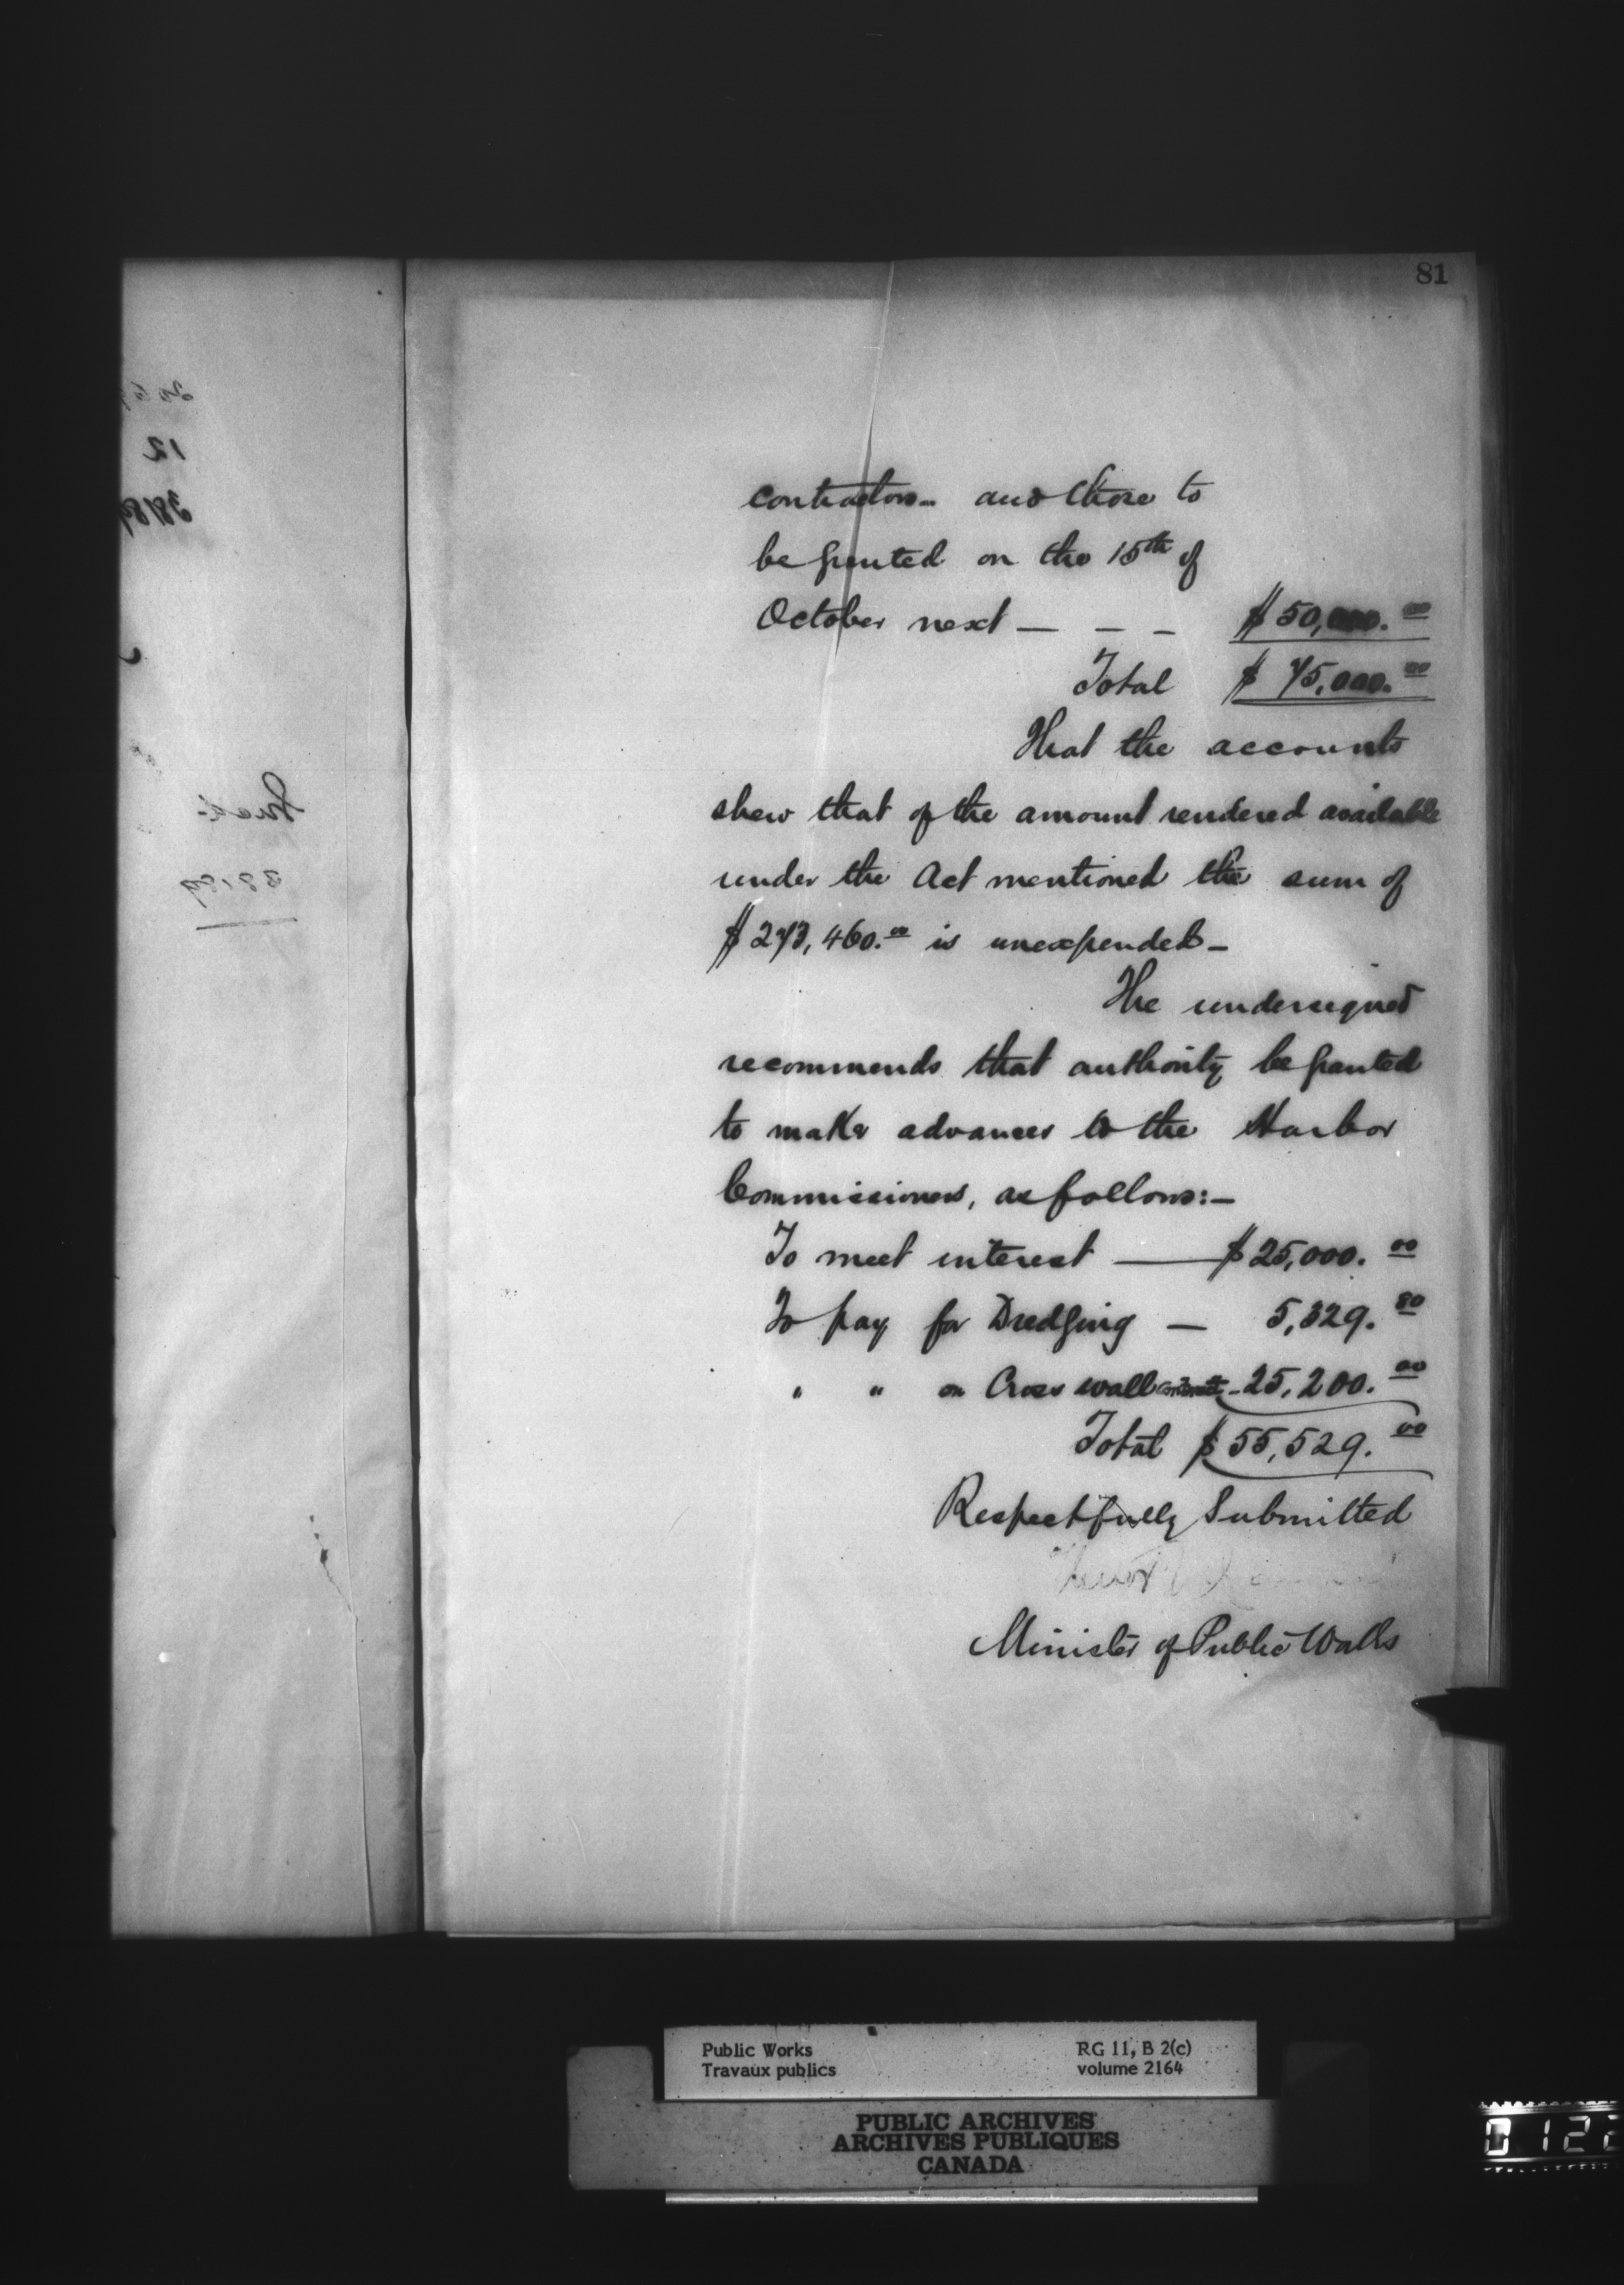 81
contractors - and those to
be granted on the 15th of
October next — — — $ 50,000.00
Total $ 75,000.00
That the accounts
shew that of the amount rendered available
under the Act mentioned the sum of
$ 273,460.00 is unexpended —
The undersigned
recommends that authority be granted
to make advances to the Harbor
Commissioners, as follows:—
To meet interest —— $ 25,000.00
To pay for Dredging — 5,329.80
" " on Cross wall contract - 25,200.00
Total $ 55,529.00
Respectfully Submitted
Minister of Public Works
12
38189
38189
Public Works
Travaux publics
RG 11, B 2(c)
volume 2164
PUBLIC ARCHIVES
ARCHIVES PUBLIQUES
CANADA
0122